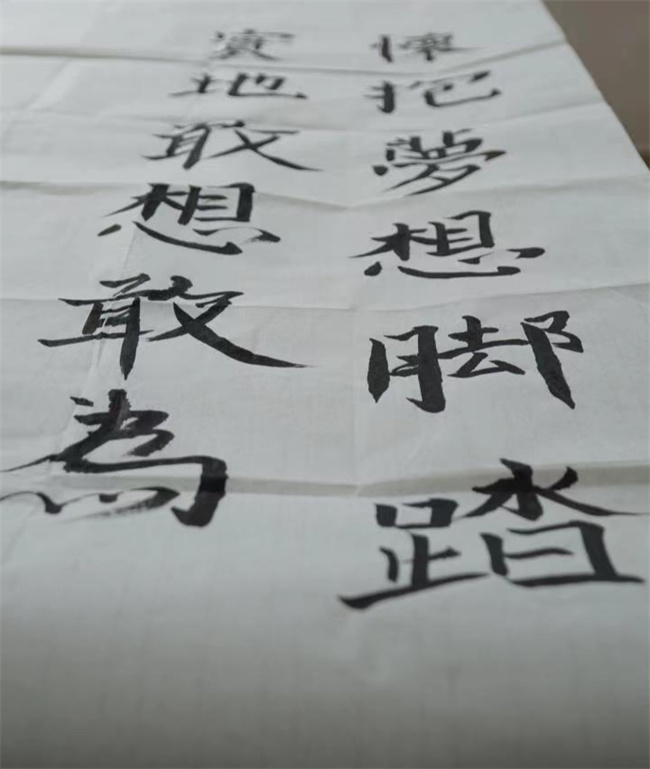 懷抱夢想脚踏
實地敢想敢為